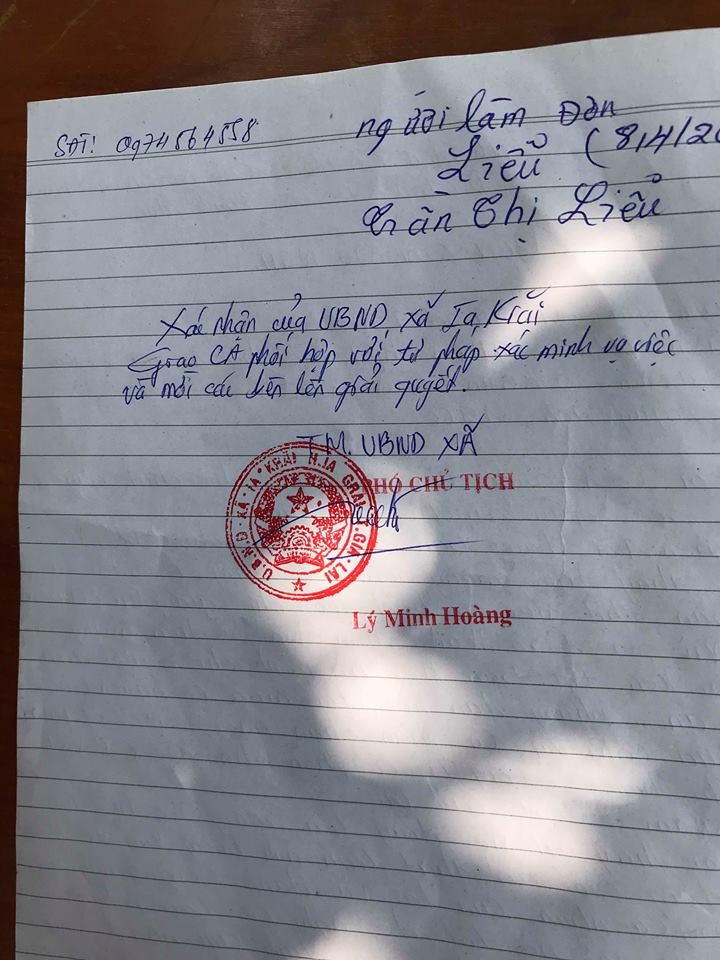 SĐT: 0974564558
người làm Đơn
Liễu (8/4/20
Trần Thị Liễu
Xác nhận của UBND xã Ia Krăi
Giao CA phối hợp với tư pháp xác minh vụ việc
và mời các bên lên giải quyết.
T.M. UBND XÃ
PHÓ CHỦ TỊCH
U.B.N.D XÃ IA KHAI H.IA GRAI T.GIA LAI
Lý Minh Hoàng